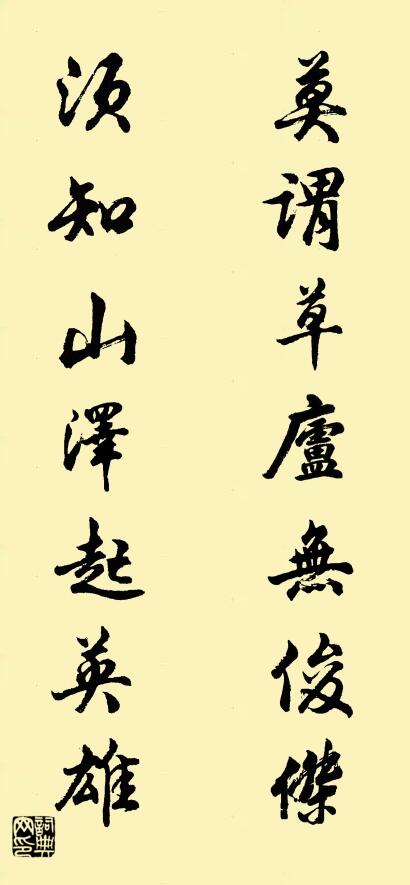 莫謂草廬無俊傑
須知山澤起英雄
詞典网印